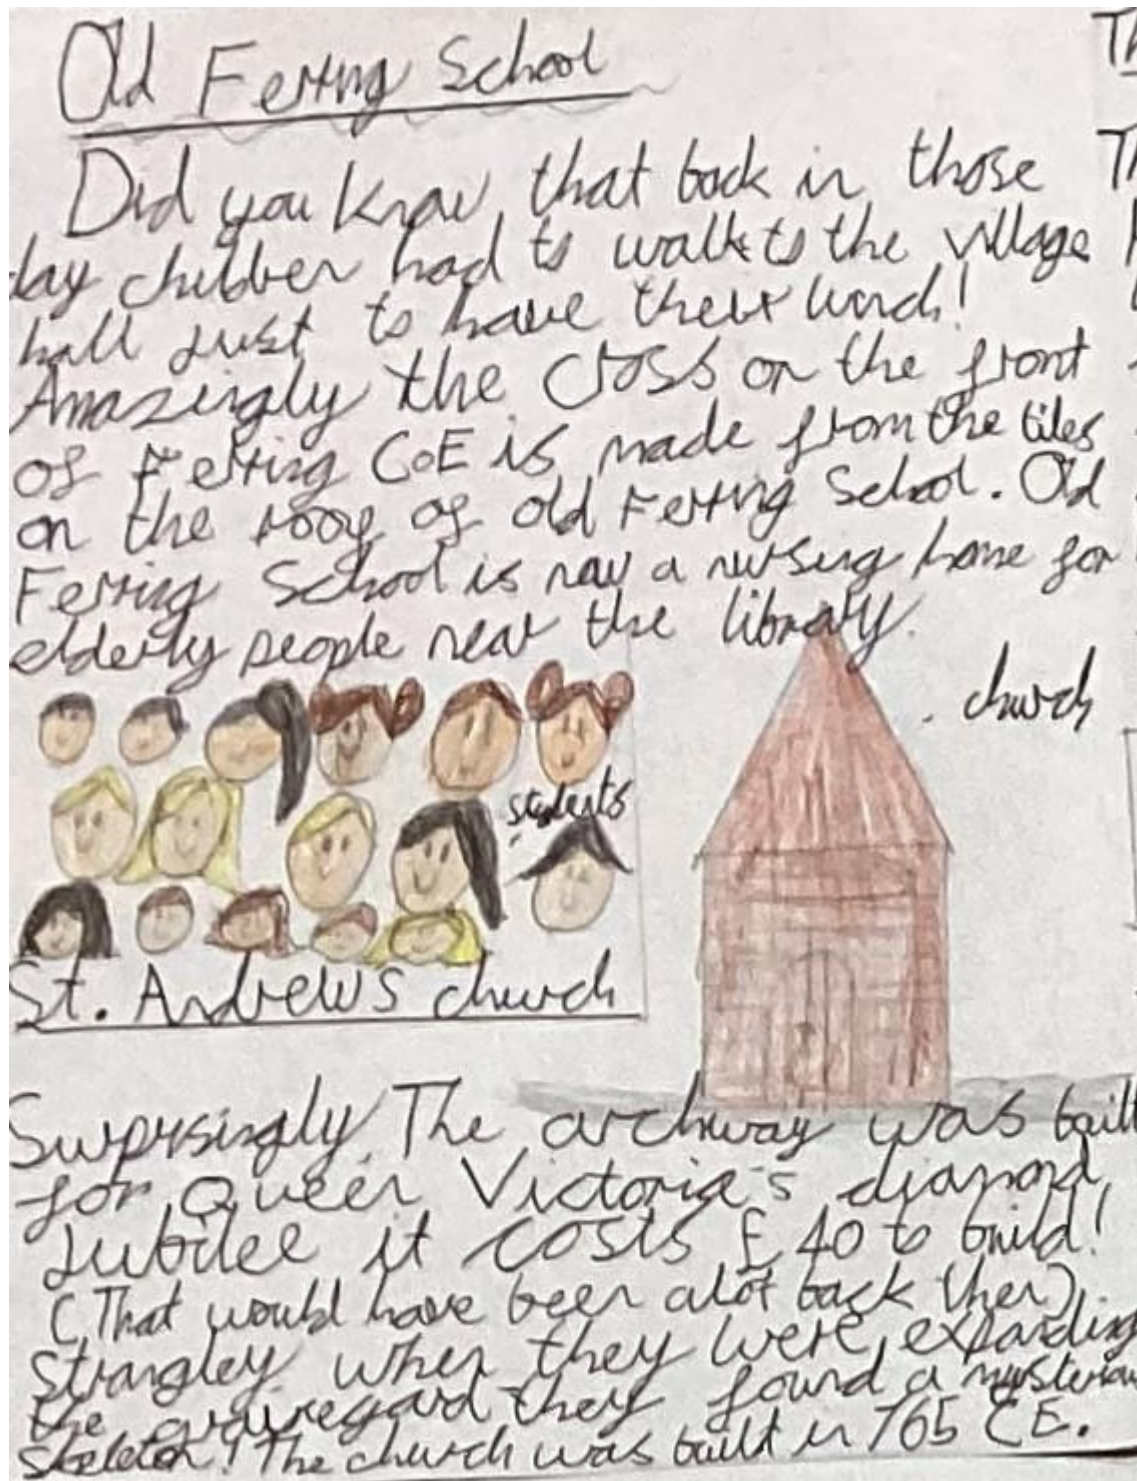 Old Ferring School
Did you know, that back in those
day children had to walk to the village
hall just to have their lunch!
Amazingly the cross on the front
of Ferring CoE is made from the tiles
on the roof of old Ferring School. Old
Ferring School is now a nursing home for
elderly people near the library.
church
students
St. Andrews church
Surprisingly, The archway was built
for Queen Victoria's diamond
Jubilee it costs £40 to build!
(That would have been alot back then).
Strangley when they were expanding
the graveyard they found a mysteriou
skeleton! The church was built in 765 CE.
Th
Th